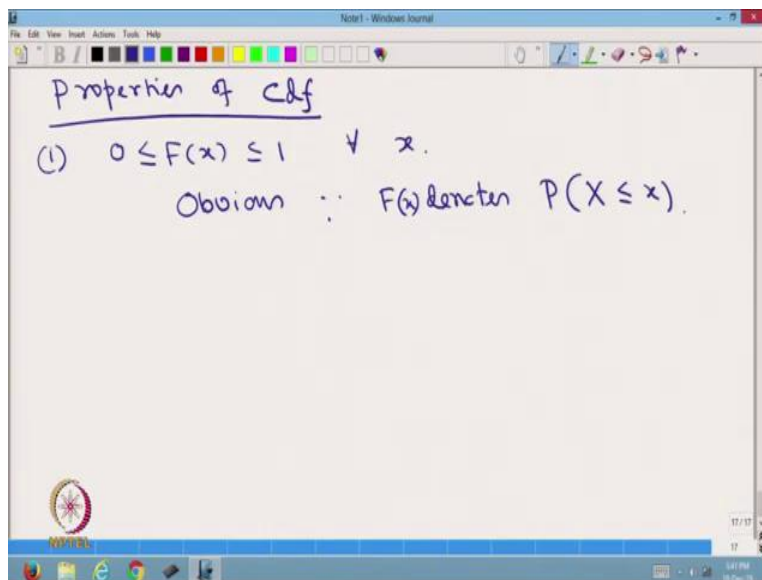 Note1 - Windows Journal
File Edit View Insert Actions Tools Help
Properties of cdf
(1) 0 ≤ F(x) ≤ 1 ∀ x.
Obvious ∵ F(x) denotes P(X ≤ x).
NPTEL
17/17
17
5:41 PM